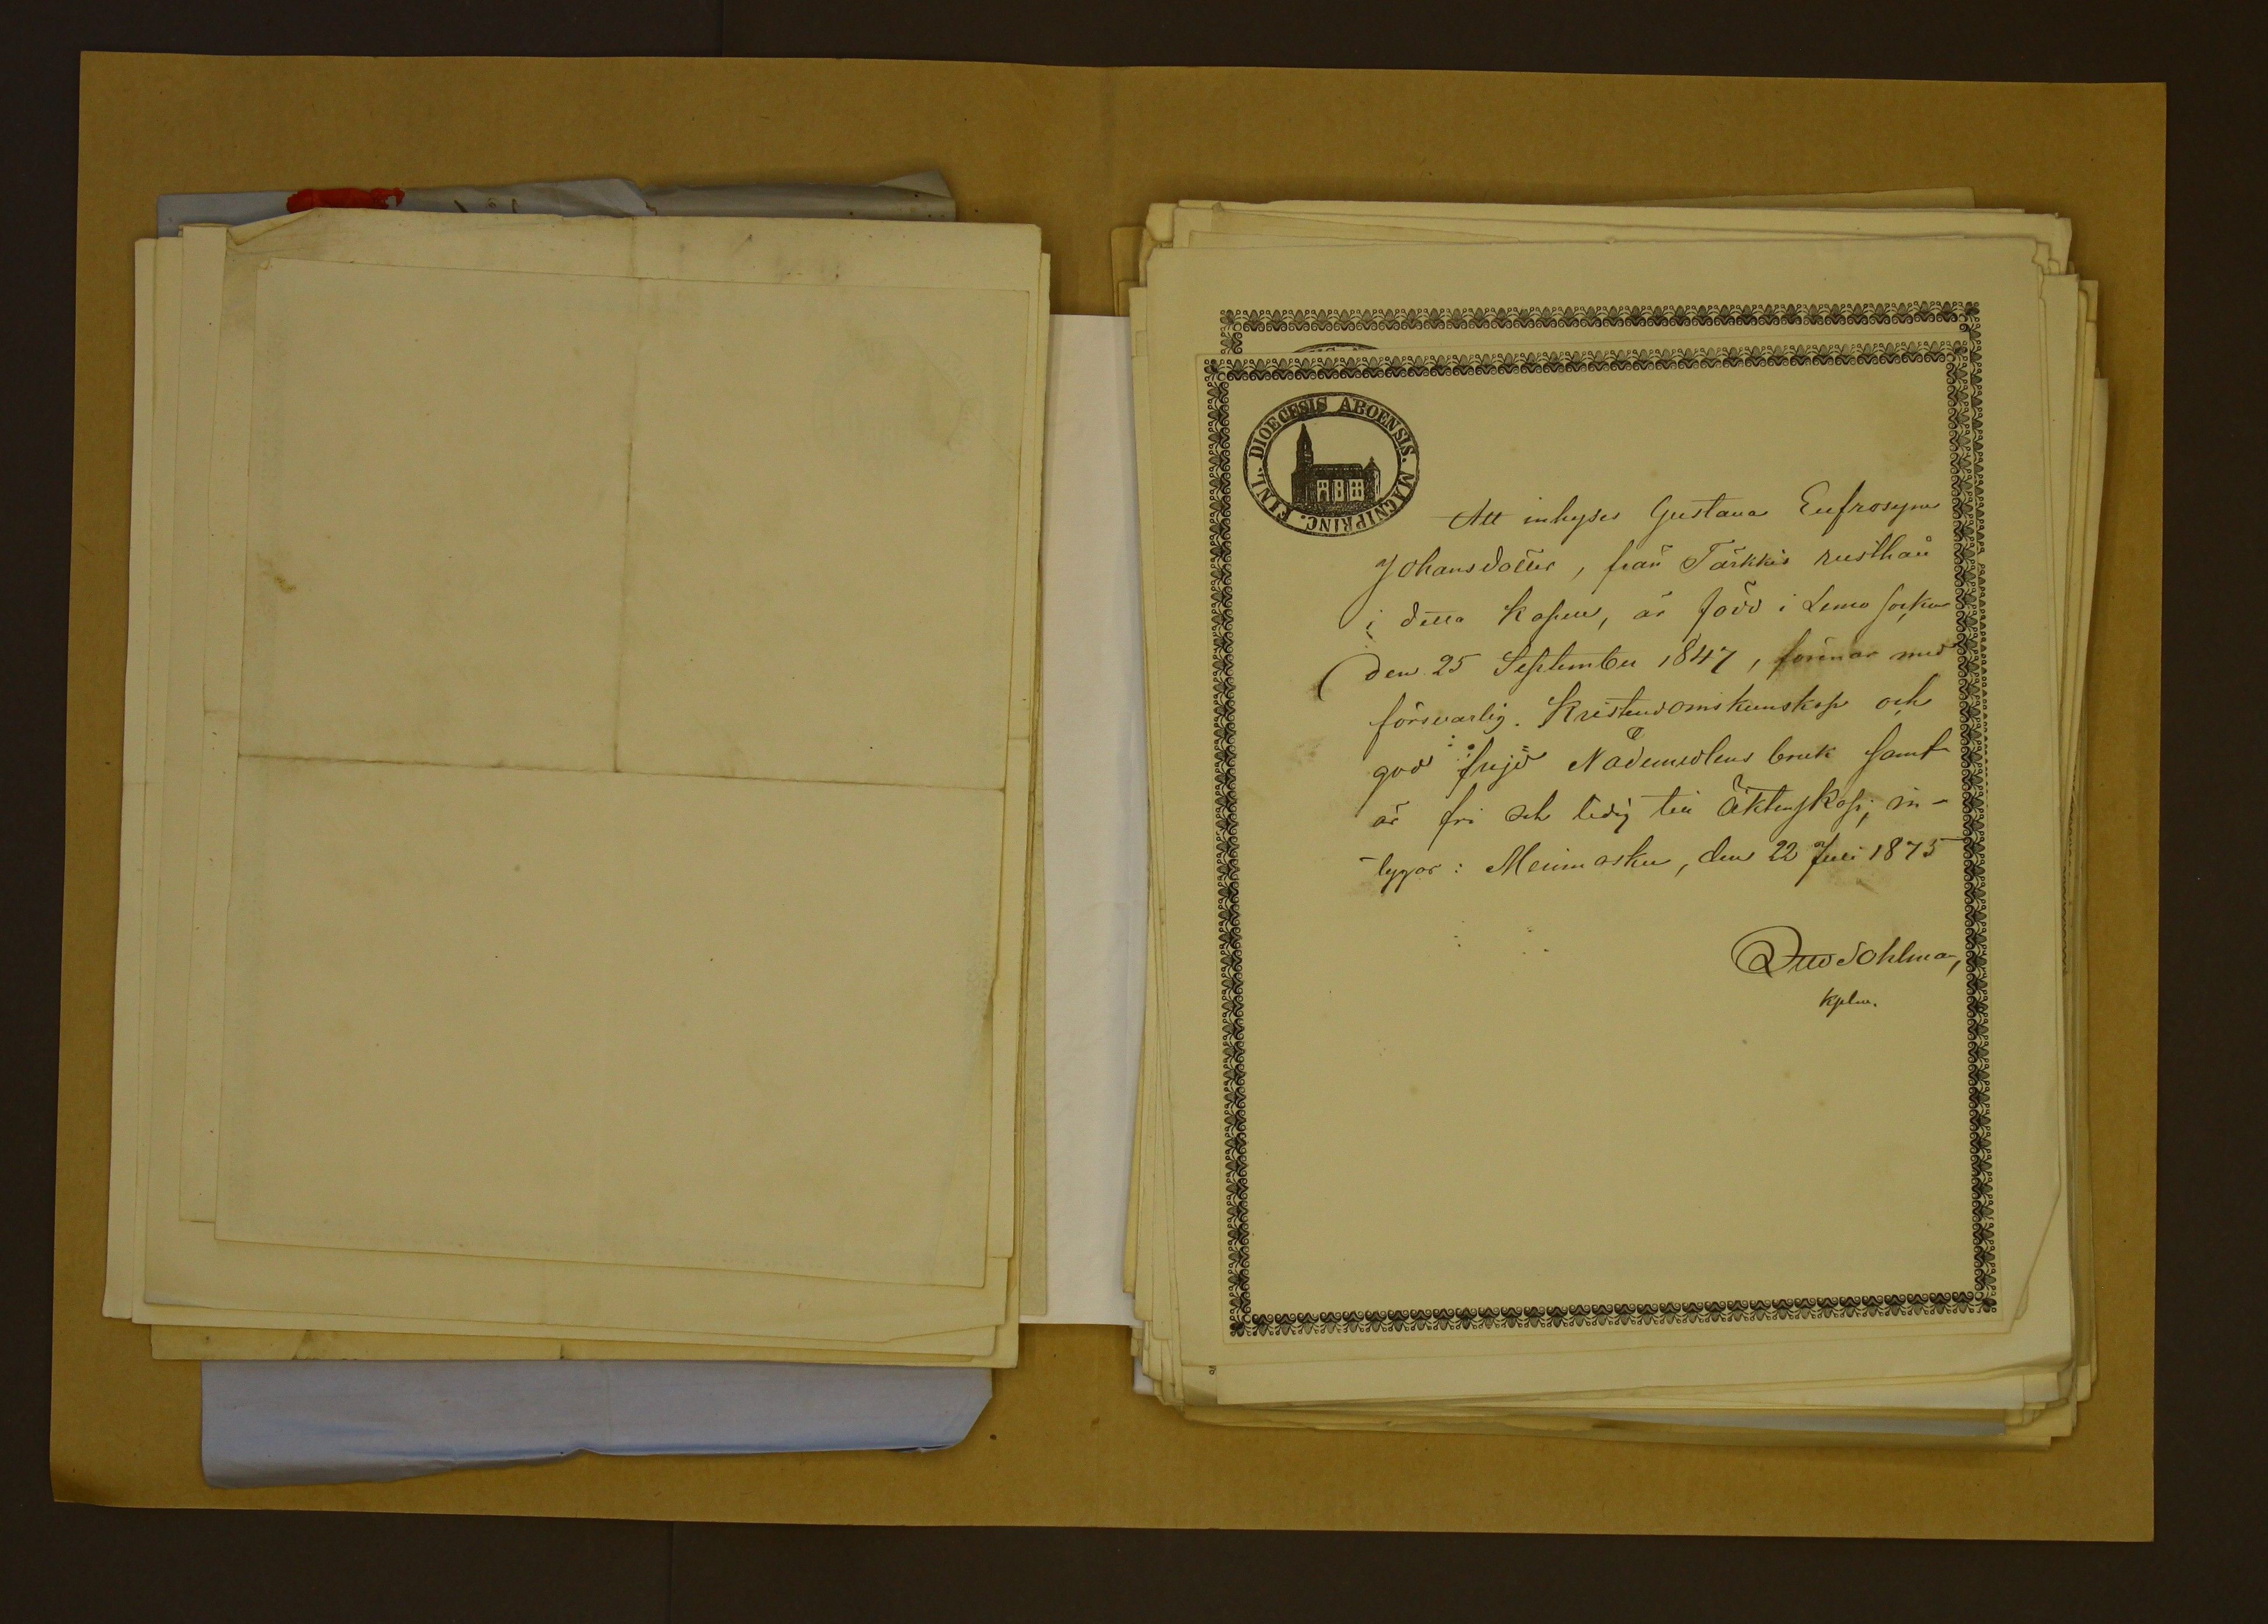 DIOECESIS ABOENSIS. MAGNIPRINC. FINL.
Att inhyses Gustava Eufrosyna
Johansdotter, från Tärkkis rusthåll
i detta Kapell, är född i Lemo socken
den 25 September 1847, förenar med
försvarlig Kristendomskunskap och
god frejd Nådemedlens bruk samt
är fri och ledig till Äktenskap, in-
tygar: Merimasku, den 22 Juli 1875
Otto Sohlman,
Kpln.